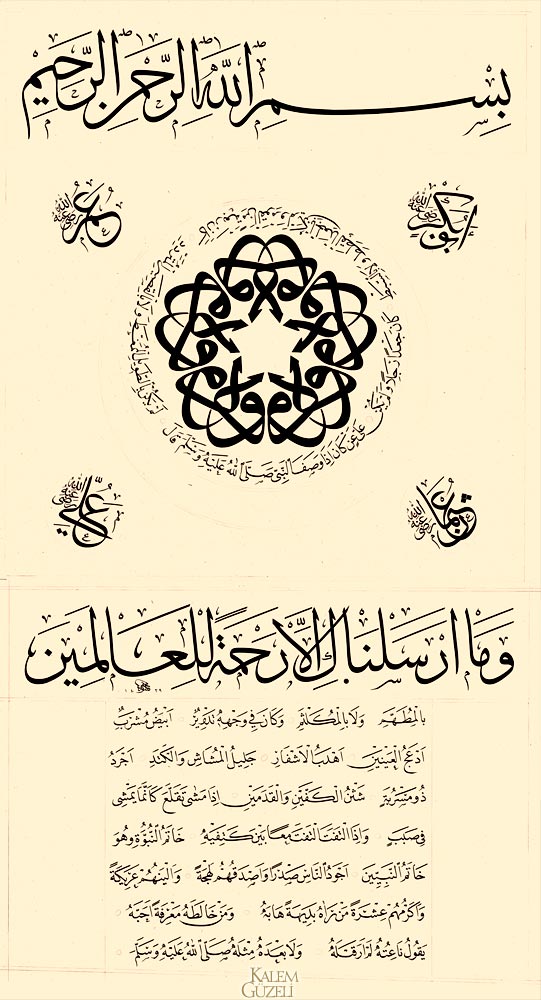 بِسْمِ اللّٰهِ الرَّحْمٰنِ الرَّحِيمِ
ابوبكر رضي الله عنه
عمر رضي الله عنه
عن علي كان اذا وصف النبي صلى الله عليه وسلم قال
عثمان رضي الله عنه
علي رضي الله عنه
وَمَا اَرْسَلْنَاكَ اِلَّا رَحْمَةً لِلْعَالَمِينَ
بالمطهم ولا بالمكلثم وكان في وجهه تدوير ابيض مشرب
ادعج العينين اهدب الاشفار جليل المشاش والكتد اجرد
ذو مسربة شثن الكفين والقدمين اذا مشى تقلع كانما يمشي
في صبب واذا التفت التفت معا بين كتفيه خاتم النبوة وهو
خاتم النبيين اجود الناس صدرا واصدقهم لهجة والينهم عريكة
واكرمهم عشرة من راه بديهة هابه ومن خالطه معرفة احبه
يقول ناعته لم ار قبله ولا بعده مثله صلى الله عليه وسلم
KALEM
GÜZELİ